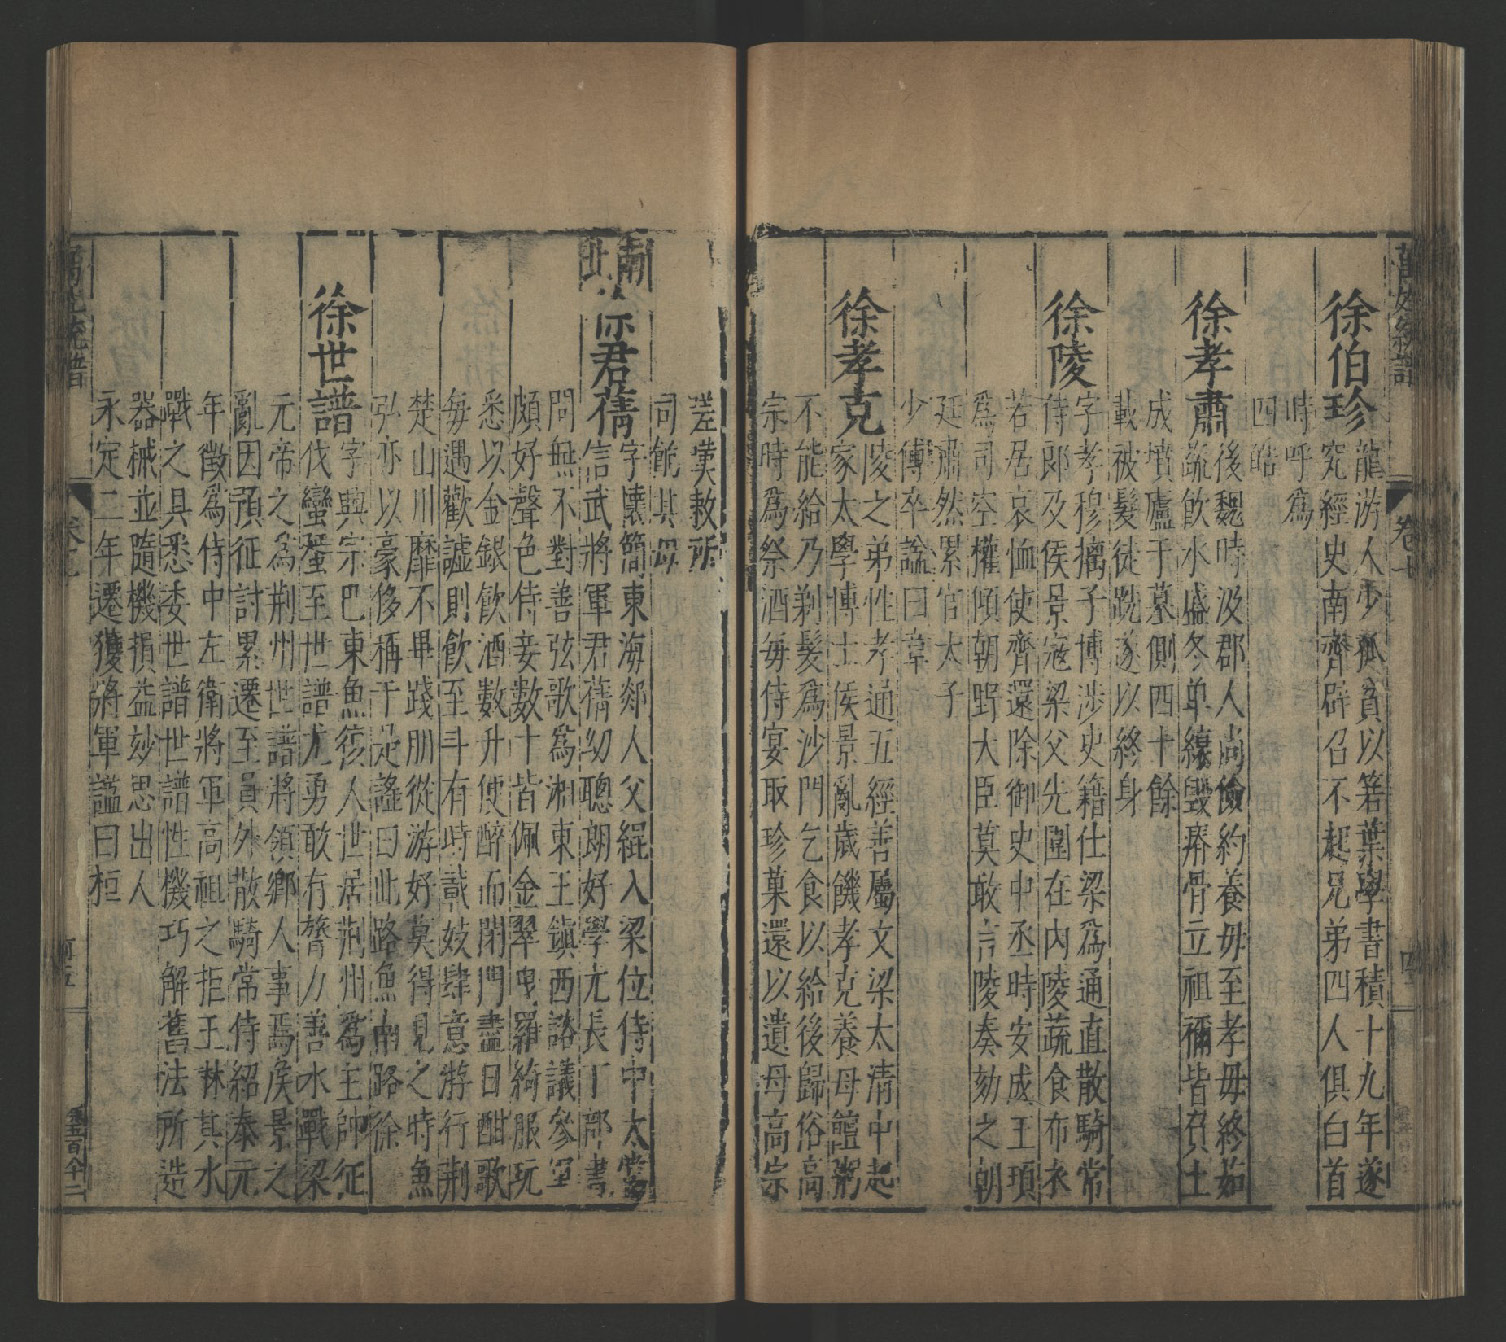 萬姓統譜
卷十
徐伯珍
龍游人少孤貧以箬葉學書積十九年遂
究經史南齊辟召不起兄弟四人俱白首
時呼爲
四皓
徐孝肅
後魏時汲郡人尚儉約養母至孝母終茹
蔬飲水盛冬单縗毀瘠骨立祖禰皆負土
成墳廬于墓側四十餘
載被髮徒跣遂以終身
徐陵
字孝穆摛子博涉史籍仕梁爲通直散騎常
侍郎及侯景寇梁父先圍在内陵蔬食布衣
若居哀恤使齊還除御史中丞時安成王頊
爲司空權傾朝野大臣莫敢言陵奏劾之朝
廷肅然累官太子
少傅卒諡曰章
徐孝克
陵之弟性孝通五經善屬文梁太清中起
家太學博士侯景亂歲饑孝克養母饘粥
不能給乃剃髮爲沙門乞食以給後歸俗高
宗時爲祭酒每侍宴取珍菓還以遺母高宗
嗟美敕所
司餉其母
南北
徐君蒨
字懷簡東海郯人父緄入梁位侍中太常
信武將軍君蒨幼聰朗好學尤長丁部書
問無不對善弦歌爲湘東王鎮西諮議參軍
頗好聲色侍妾數十皆佩金翠曳羅綺服玩
悉以金銀飲酒數升便醉而閉門盡日酣歌
每遇歡謔則飲至斗有時載妓肆意游行荆
楚山川靡不畢踐朋從游好莫得見之時魚
弘亦以豪侈稱于是謠曰北路魚南路徐
徐世譜
字興宗巴東魚復人世居荆州爲主帥征
伐蠻蜑至世譜尤勇敢有膂力善水戰梁
元帝之爲荆州世譜將領鄉人事焉侯景之
亂因預征討累遷至員外散騎常侍紹泰元
年徵爲侍中左衛將軍高祖之拒王琳其水
戰之具悉委世譜世譜性機巧解舊法所造
器械並隨機損益妙思出人
永定二年遷護將軍諡曰桓
萬姓統譜